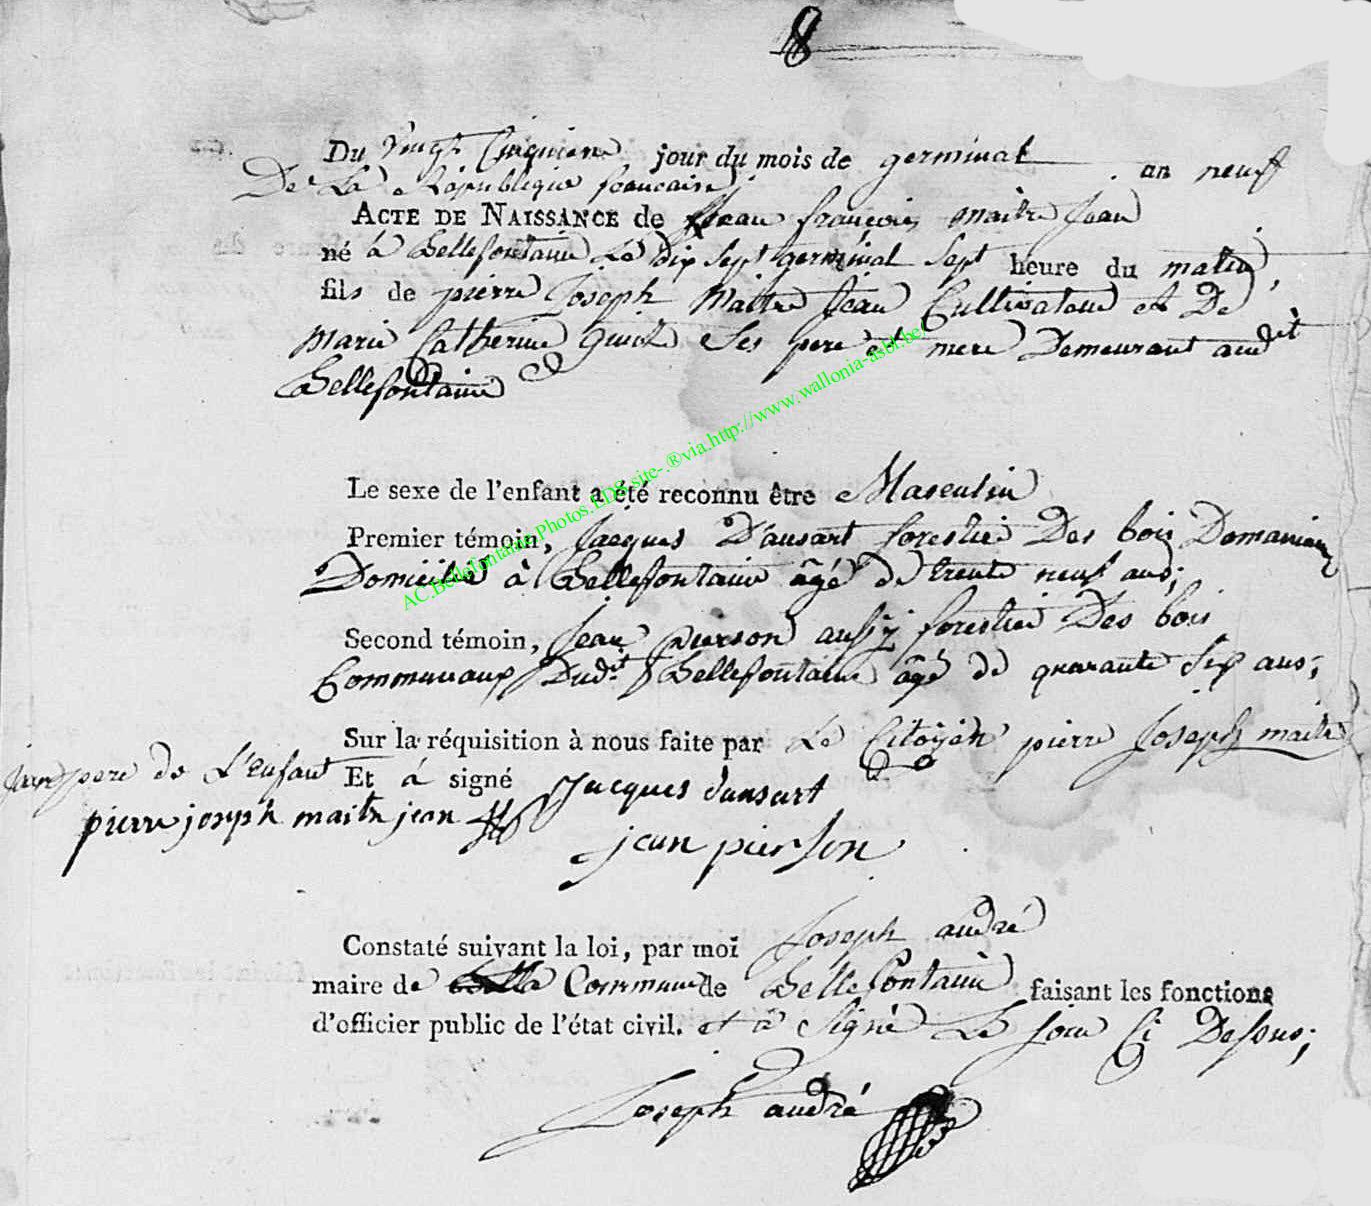 8
Du vingt Cinquieme jour du mois de germinal an neuf
De La République francaise;
ACTE DE NAISSANCE de Jean françois maitre Jean
né à Bellefontaine Le dix sept germinal sept heure du matin,
fils de pierre Joseph Maitre Jean Cultivateur et De
Marie Catherine guiot ses pere et mere Demeurant audit
Bellefontaine
Le sexe de l'enfant a été reconnu être Masculin
Premier témoin, Jacques D'ausart forestier Des bois Domaniaux
Domicilié à Bellefontaine âgé de trente neuf ans;
Second témoin, Jean pierson aussy forestier Des bois
Communaux Dudt Bellefontaine âgé de quarante six ans;
Sur la réquisition à nous faite par Le Citoyen pierre Joseph maitre
Jean pere de L'enfant Et á signé Jacques dansart
pierre joseph maitre jean
jean pierson
Constaté suivant la loi, par moi Joseph andré
maire de la Commune de Bellefontaine faisant les fonctions
d'officier public de l'état civil. et à Signé Le jour Ci Dessus;
Joseph andré
AC.Bellefontaine.Photos.EDS.site-.®via.http://www.wallonia-asbl.be/